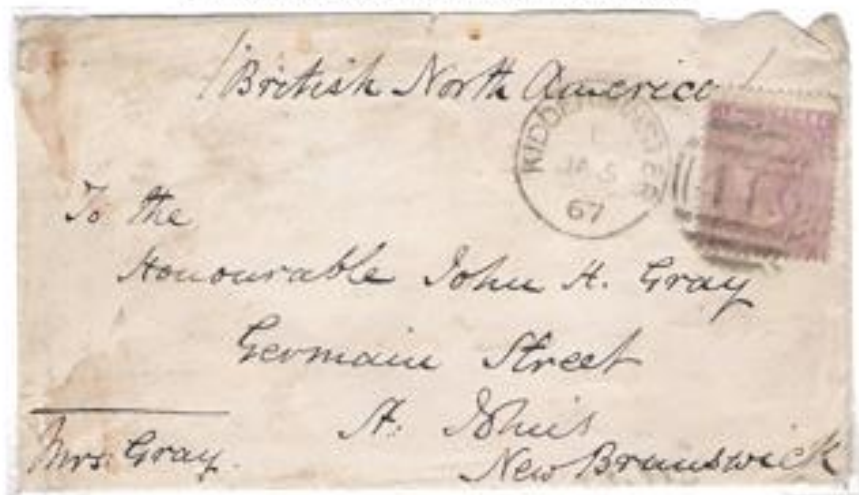 (British North America)
KIDDERMINSTER
JA 5
67
To the
Honourable John H. Gray
Germain Street
St. John's
New Brunswick
Mrs. Gray.